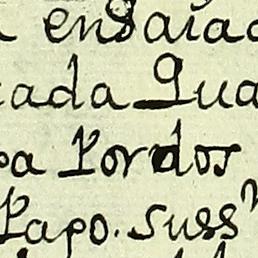 ensaiad
cada Qua
pa Pordos
Papo. suss